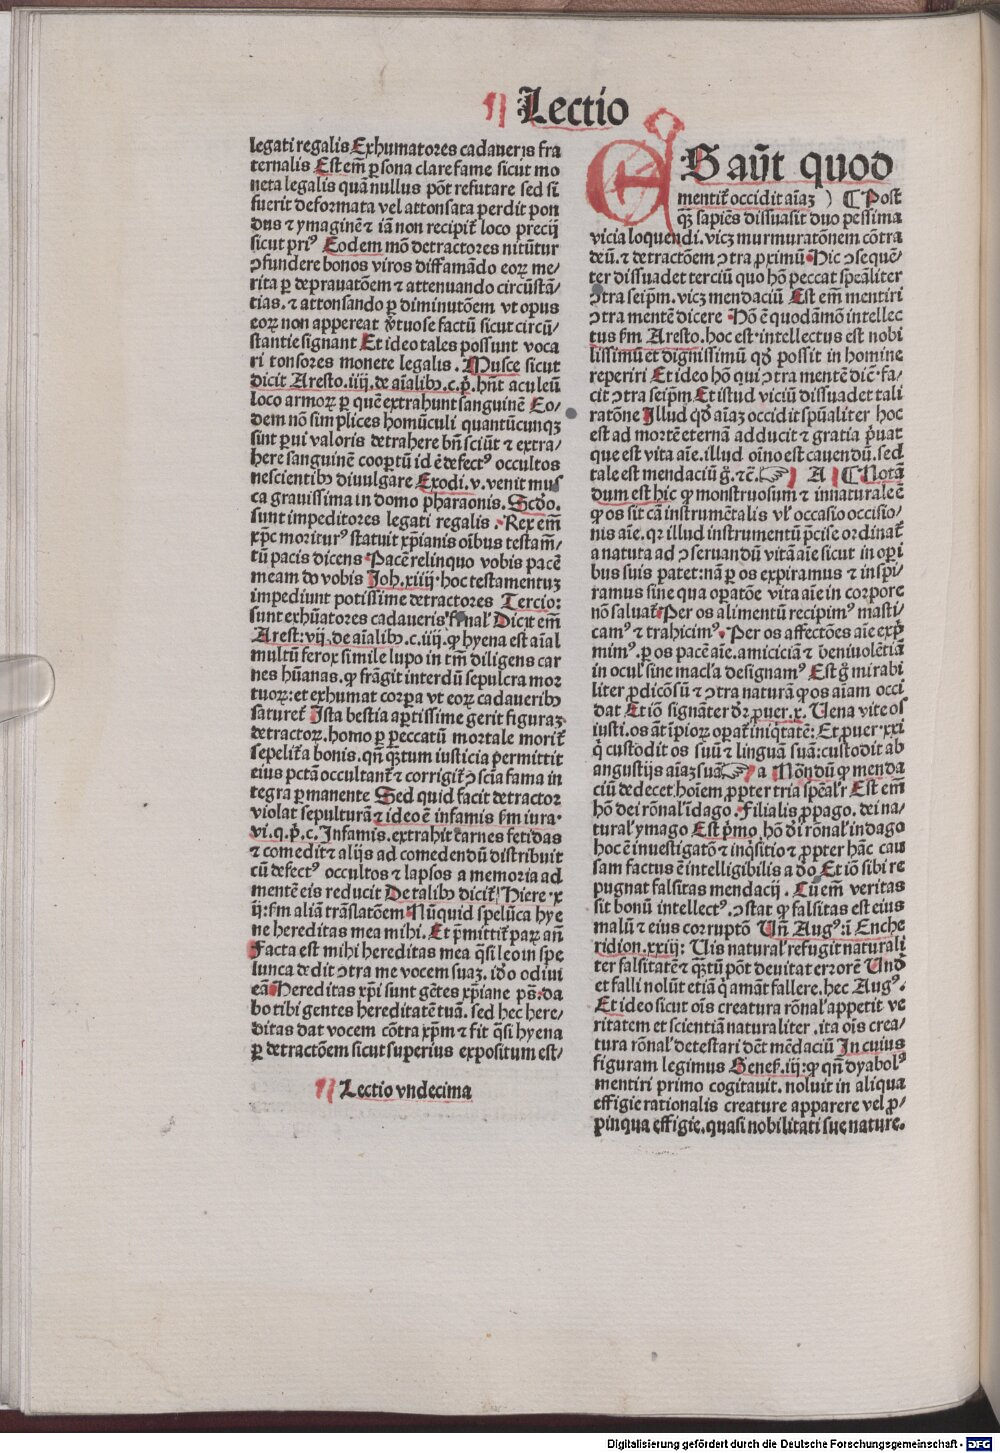 Lectio
legati regalis Exhumatores cadaueris fra
ternalis Est em̄ ꝑsona clare fame sicut mo
neta legalis quā nullus pōt refutare sed si
fuerit deformata vel attonsata perdit pon
dus ⁊ ymaginē ⁊ iā non recipit̄ loco precij
sicut priꝰ Eodem mō detractores nitūtur
ↄfundere bonos viros diffamādo eoꝝ me/
rita ꝑ deprauatōem ⁊ attenuando circūstā/
tias. ⁊ attonsando ꝑ diminutōem vt opus
eoꝝ non appereat v̓tuose factū sicut circū/
stantie signant Et ideo tales possunt voca
ri tonsores monete legalis. Musce sicut
dicit Aresto.iiij.de aīalibꝫ.c.p̄. hn̄t aculeū
loco armoꝝ ꝑ quē extrahunt sanguinē Eo/
dem nō simplices homūculi quantūcunqꝫ
sint ꝑui valoris detrahere bn̄ sciūt ⁊ extra/
here sanguinē coopertū id ē defectꝰ occultos
nescientibꝫ diuulgare Exodi.v.venit mus
ca grauissima in domo pharaonis. Scd̓o.
sunt impeditores legati regalis. Rex em̄
xp̄c moriturꝰ statuit xp̄ianis oībus testam̄/
tū pacis dicens Pacē relinquo vobis pacē
meam do vobis Joh.xiiij hoc testamentuꝫ
impediunt potissime detractores Tercio:
sunt exhūatores cadaueris fr̄nal̓ Dicit em̄
Arest:vij.de aīalibꝫ.c.iiij.ꝙ hyena est aīal
multū ferox simile lupo in tm̄ diligens car
nes hūanas.ꝙ frāgit interdū sepulcra mor
tuoꝝ:et exhumat corꝑa vt eoꝝ cadaueribꝫ
saturet̄ Ista bestia aptissime gerit figuraꝫ
detractoꝝ.homo ꝑ peccatū mortale morit̄
sepelit̄ a bonis. qn̄ qꝫtum iusticia permittit
eius pctā occultant̄ ⁊ corrigit̄ ↄscīa fama in
tegra ꝑmanente Sed quid facit detractor
violat sepulturā ⁊ ideo ē infamis s̄m iura
vi.q.p̄.c.Infamis.extrahit carnes fetidas
⁊ comedit ⁊ alijs ad comedendū distribuit
cū defectꝰ occultos ⁊ lapsos a memoria ad
mentē eis reducit De talibꝫ dicit̄ Hiere.x
ij:s̄m aliā trāslatōem Nūquid spelūca hye
ne hereditas mea mihi. Et p̄mittit̄ paꝝ an̄
Facta est mihi hereditas mea q̄si leo in spe
lunca dedit ↄtra me vocem suaꝫ. id̓o odiui
eā Hereditas xp̄i sunt gētes xp̄iane ps̄: da
bo tibi gentes hereditatē tuā. sed hec here/
ditas dat vocem cōtra xp̄m ⁊ fit q̄si hyena
ꝑ detractōem sicut superius expositum est/
Lectio vndecima
OS aūt quod
mentit̄ occidit aīaꝫ ) ¶ Post
qꝫ sapiēs dissuasit duo pessima
vicia loquendi. vicꝫ murmuratōnem cōtra
deū. ⁊ detractōem ↄtra ꝓximū Hic ↄsequē/
ter dissuadet terciū quo hō peccat speāliter
ↄtra seip̄m. vicꝫ mendaciū Est em̄ mentiri
ↄtra mentē dicere Hō ē quodāmō intellec
tus s̄m Aresto.hoc est intellectus est nobi
lissimū et dignissimū qd̓ possit in homine
reperiri Et ideo hō qui ↄtra mentē dic̄ fa/
cit ↄtra seip̄m Et istud viciū dissuadet tali
ratōne Illud qd̓ aīaꝫ occidit spūaliter hoc
est ad mortē eternā adducit ⁊ gratia p̄uat
que est vita aīe.illud oīno est cauendū.sed
tale est mendaciū g̊. ⁊c̄. ☞ A ¶ Notā
dum est hic ꝙ monstruosum ⁊ innaturale ē
ꝙ os sit cā instrumētalis vl̓ occasio occisio/
nis aīe. qꝛ illud instrumentū p̄cise ordinat̄
a natura ad ↄseruandū vitā aīe sicut in oꝑi
bus suis patet: nā ꝑ os expiramus ⁊ inspi/
ramus sine qua oꝑatōe vita aīe in corpore
nō saluat̄ Per os alimentū recipimꝰ masti
camꝰ ⁊ trahicimꝰ. Per os affectōes aīe exp̄
mimꝰ. ꝑ os pacē aīe. amiciciā ⁊ beniuolētiā
in oculꝭ sine macl̓a designamꝰ Est g̊ mirabi
liter ꝑdicōsū ⁊ ↄtra naturā ꝙ os aīam occi
dat Et iō signāter dr̄ prouer.x. Uena vite os
iusti. os aūt īpioꝝ oꝑat̄ iniq̄tatē: Et prouer.xxi
q̄ custodit os suū ⁊ linguā suā: custodit ab
angustijs aīaꝫ suā ☞ a Nōndū ꝙ menda
ciū dedecet hoīem ꝓpter tria speāl̓r Est em̄
hō dei rōnal̓ īdago. Filialis ꝓpago. dei na/
tural̓ ymago Est p̄mo hō dei rōnal̓ indago
hoc ē inuestigatō ⁊ inq̄sitio ⁊ ꝓpter hāc cau
sam factus ē intelligibilis a deo Et iō sibi re
pugnat falsitas mendacij. Cū em̄ veritas
sit bonū intellectꝰ. ↄstat ꝙ falsitas est eius
malū ⁊ eius corruptō Un̄ Augꝰ: ī Enche
ridion.xxiij: Uis natural̓ refugit naturali
ter falsitatē ⁊ qꝫtū pōt deuitat errorē Und̓
et falli nolūt etiā q̄ amāt fallere. hec Augꝰ.
Et ideo sicut oīs creatura rōnal̓ appetit ve
ritatem et scientiā naturaliter. ita oīs crea/
tura rōnal̓ detestari dēt mēdaciū In cuius
figuram legimus Genes̄.iij: ꝙ qn̄ dyabolꝰ
mentiri primo cogitauit. noluit in aliqua
effigie rationalis creature apparere vel ꝓ/
pinqua effigie. quasi nobilitati sue nature.
Digitalisierung gefördert durch die Deutsche Forschungsgemeinschaft - DFG